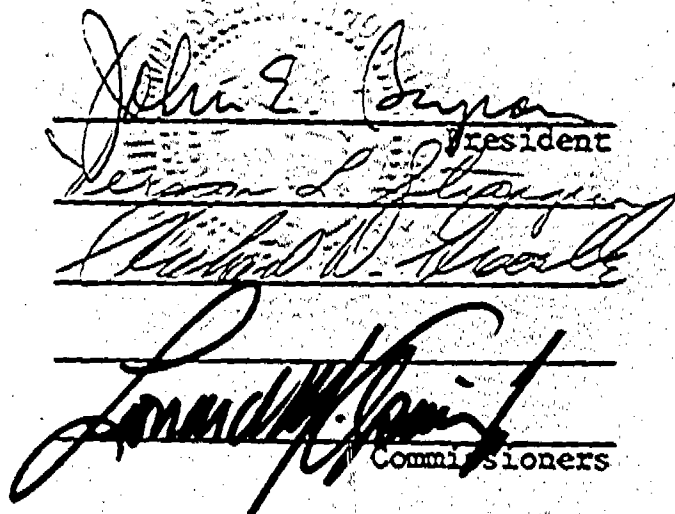 John E. Bryson
President
Vernon L. Sturgeon
Richard D. Gravelle
Leonard M. Grimes, Jr.
Commissioners